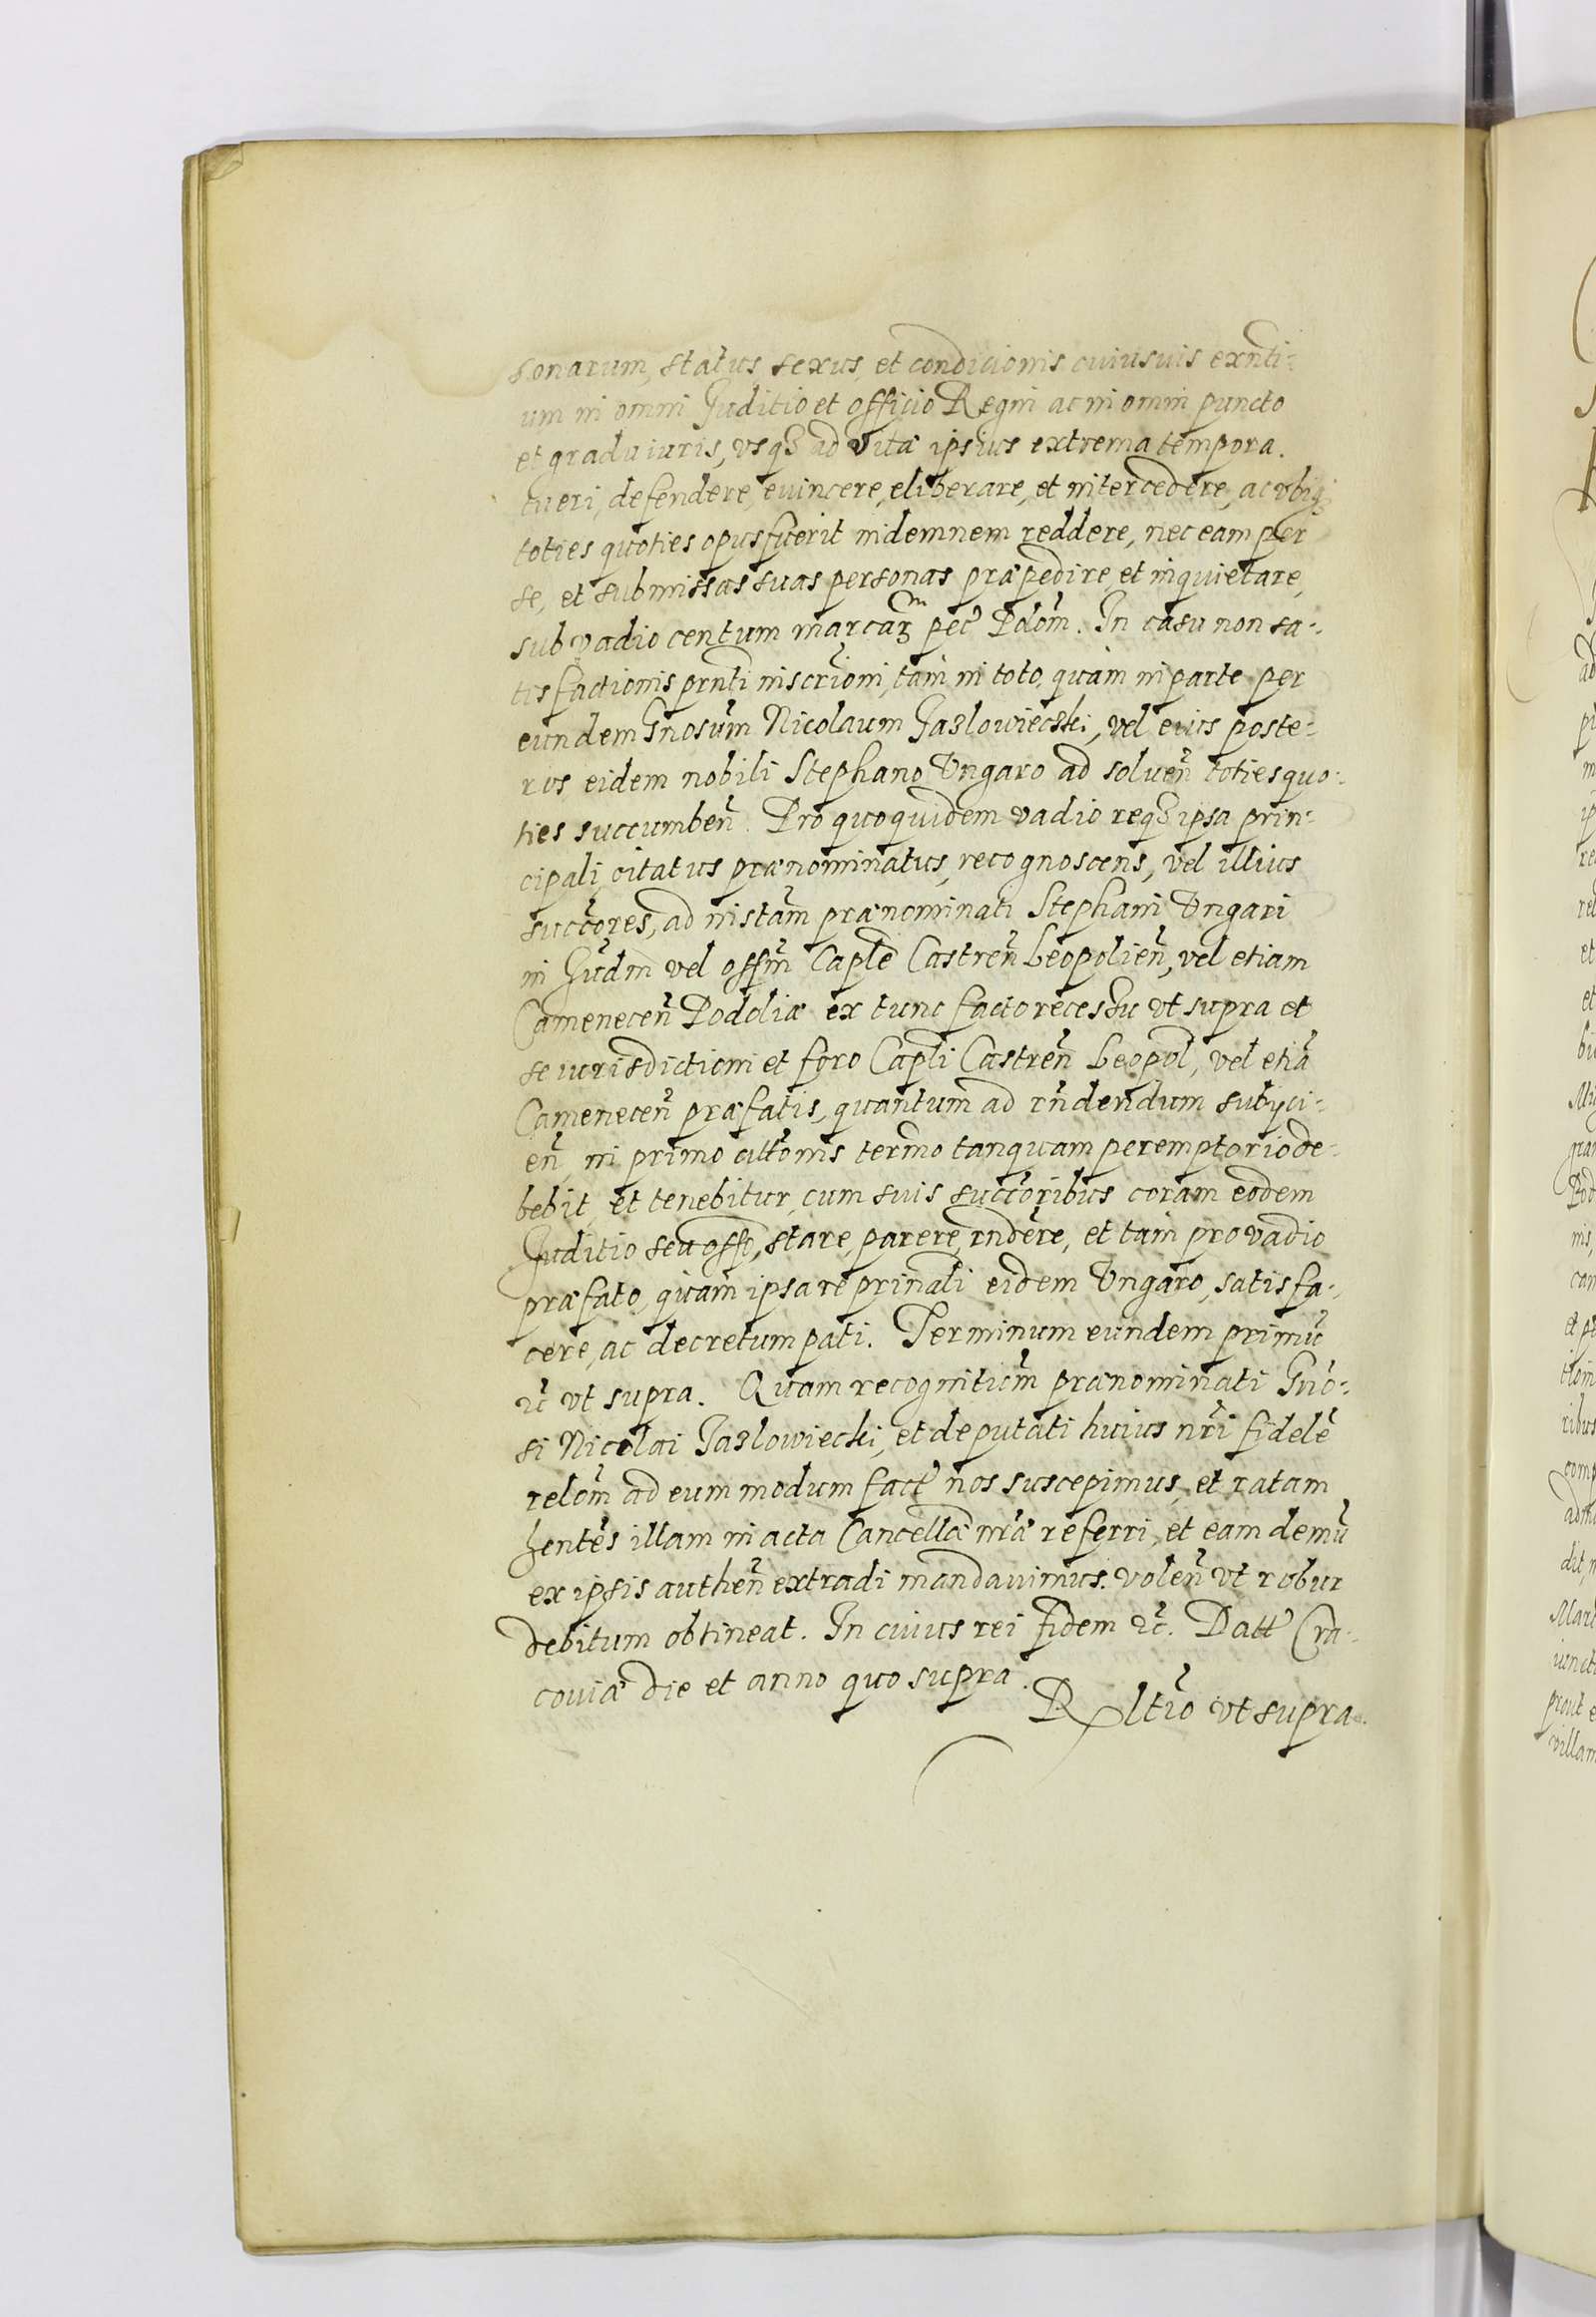 sonarum, status, sexus, et condicionis cuiusuis exn̄ti-
um in omni Juditio et officio Regni ac in omni puncto
et gradu iuris, vsqȝ ad vitæ ipsius extrema tempora.
tueri, defendere, euincere, eliberare, et intercedere, ac vbiqȝ
toties quoties opus fuerit indemnem reddere, nec eam per
se, et submissas suas personas præpedire, et inquietare,
sub vadio centum marcarȝ pec̄ Polōm. In casu non sa-
tisfactionis prn̄ti inscrīoni, tam in toto, quàm in parte per
eundem Gnosūm Nicolaum Jazlowieczki, vel eius poste-
ros eidem nobili Stephano Vngaro ad soluen̄ toties quo-
ties succumben̄. Pro quo quidem vadio reqȝ ipsa prin-
cipali, citatus prænominatus, recognoscens, vel illius
succ̄ores, ad inst̄am prænominati Stephani Vngari
in Jūdm vel offm̄ Capl̄e Castren̄ Leopolien̄, vel etiam
Camenecen̄ Podoliæ ex tunc facto recessu vt supra et
se iurisdictioni et foro Capl̄i Castren̄ Leopol̄, vel etiā
Camenecen̄ præfatis, quantum ad rn̄dendum subijci-
en̄, in primo citt̄onis termo tanquam peremptorio de-
bebit, et tenebitur, cum suis succ̄oribus coram eodem
Juditio seu offō, stare, parere, rn̄dere, et tam pro vadio
præfato, quàm ipsa re prin̄ali eidem Vngaro, satisfa-
cere, ac decretum pati. Terminum eundem primū
ꝛc̄ vt supra. Quam recognitiōm prænominati Gnō-
si Nicolai Jazlowiecki, et deputati huius nr̄i fidelē
relōm ad eum modum fact̄ nos suscepimus, et ratam
hentēs illam in acta Cancellæ nr̄æ referri, et eam demū
ex ipsis authen̄ extradi mandauimus. volen̄ vt robur
debitum obtineat. In cuius rei fidem ꝛc̄. Datt̄ Cra-
couiæ die et anno quo supra.
Rltīo vt supra.